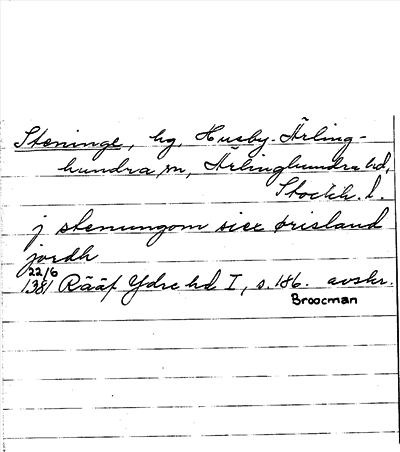 Steninge, hg, Husby-Ärling-
hundra, sn, Ärlinghundra hd,
Stockh. l.
j stenungom siex örisland
jordh
22/6
1381 Rääf Ydre hd I, s. 186. avskr.
Broocman